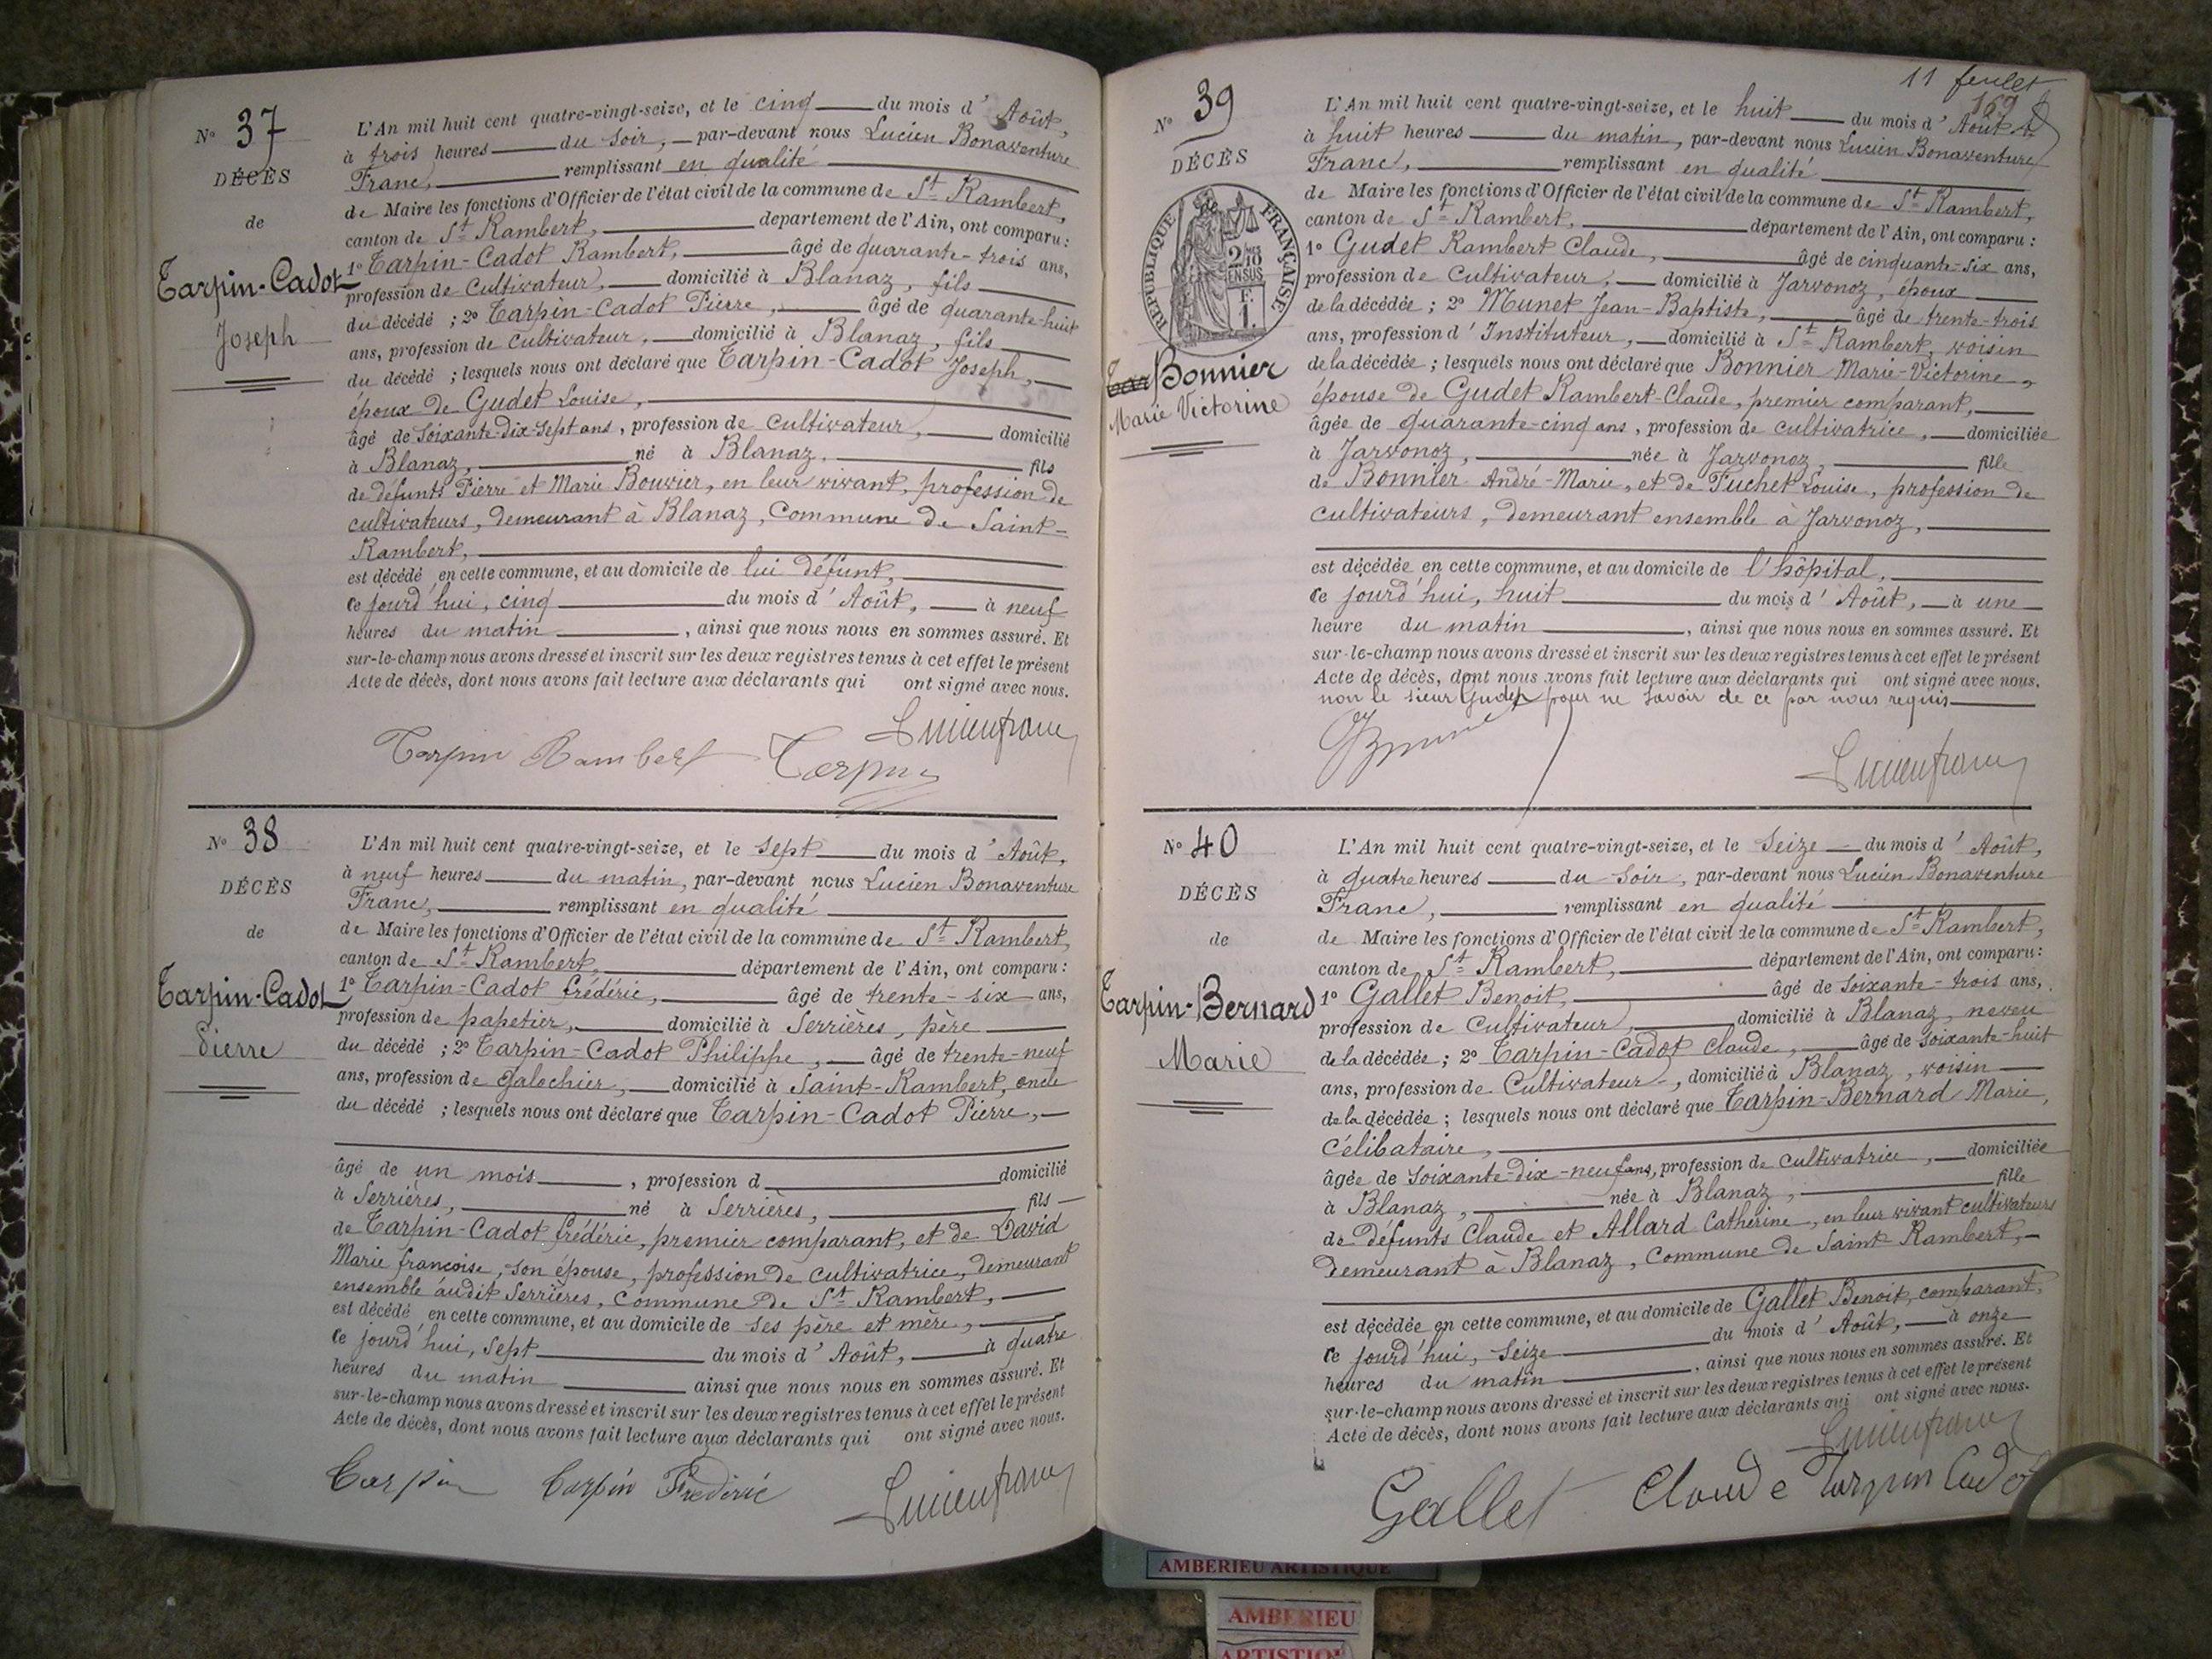 N° 37
DÉCÈS
de
Tarpin-Cadot
Joseph
L'An mil huit cent quatre-vingt-seize, et le cinq du mois d' Août,
à trois heures du soir, par-devant nous Lucien Bonaventure
Franc, remplissant en qualité
de Maire les fonctions d'Officier de l'état civil de la commune de St Rambert,
canton de St Rambert, département de l'Ain, ont comparu :
1° Tarpin-Cadot Rambert, âgé de quarante-trois ans,
profession de Cultivateur, domicilié à Blanaz, fils
du décédé ; 2° Tarpin-Cadot Pierre, âgé de quarante-huit
ans, profession de cultivateur, domicilié à Blanaz, fils
du décédé ; lesquels nous ont déclaré que Tarpin-Cadot Joseph,
époux de Gudet Louise,
âgé de soixante-dix-sept ans, profession de cultivateur, domicilié
à Blanaz, né à Blanaz, fils
de défunts Pierre et Marie Bouvier, en leur vivant, profession de
cultivateurs, demeurant à Blanaz, Commune de Saint-
Rambert,
est décédé en cette commune, et au domicile de lui défunt,
ce jourd'hui, cinq du mois d' Août, à neuf
heures du matin, ainsi que nous nous en sommes assuré. Et
sur-le-champ nous avons dressé et inscrit sur les deux registres tenus à cet effet le présent
Acte de décès, dont nous avons fait lecture aux déclarants qui ont signé avec nous.
Lucien franc
Tarpin Rambert Tarpin
N° 38
DÉCÈS
de
Tarpin-Cadot
Pierre
L'An mil huit cent quatre-vingt-seize, et le sept du mois d' Août,
à neuf heures du matin, par-devant nous Lucien Bonaventure
Franc, remplissant en qualité
de Maire les fonctions d'Officier de l'état civil de la commune de St Rambert,
canton de St Rambert, département de l'Ain, ont comparu :
1° Tarpin-Cadot frédéric, âgé de trente-six ans,
profession de papetier, domicilié à Serrières, père
du décédé ; 2° Tarpin-Cadot Philippe, âgé de trente-neuf
ans, profession de galochier, domicilié à Saint-Rambert, oncle
du décédé ; lesquels nous ont déclaré que Tarpin-Cadot Pierre,
âgé de un mois, profession d domicilié
à Serrières, né à Serrières, fils
de Tarpin-Cadot frédéric, premier comparant, et de David
Marie françoise, son épouse, profession de cultivatrice, demeurant
ensemble audit Serrières, commune de St Rambert,
est décédé en cette commune, et au domicile de ses père et mère,
ce jourd'hui, sept du mois d' Août, à quatre
heures du matin ainsi que nous nous en sommes assuré. Et
sur-le-champ nous avons dressé et inscrit sur les deux registres tenus à cet effet le présent
Acte de décès, dont nous avons fait lecture aux déclarants qui ont signé avec nous.
Tarpin Tarpin Frédéric Lucien franc
11 feulet
169
N° 39
DÉCÈS
RÉPUBLIQUE FRANÇAISE
2/10 EN SUS
F. 1.
Tar Bonnier
Marie Victorine
L'An mil huit cent quatre-vingt-seize, et le huit du mois d' Août
à huit heures du matin, par-devant nous Lucien Bonaventure
Franc, remplissant en qualité
de Maire les fonctions d'Officier de l'état civil de la commune de St Rambert,
canton de St Rambert, département de l'Ain, ont comparu :
1° Gudet Rambert Claude, âgé de cinquante-six ans,
profession de cultivateur, domicilié à Jarvonoz, époux
de la décédée ; 2° Munet Jean-Baptiste, âgé de trente-trois
ans, profession d' Instituteur, domicilié à St Rambert, voisin
de la décédée ; lesquels nous ont déclaré que Bonnier Marie-Victorine,
épouse de Gudet Rambert-Claude, premier comparant,
âgée de quarante-cinq ans, profession de cultivatrice, domiciliée
à Jarvonoz, née à Jarvonoz, fille
de Bonnier André-Marie, et de Fuchet Louise, profession de
cultivateurs, demeurant ensemble à Jarvonoz,
est décédée en cette commune, et au domicile de l'hôpital,
ce jourd'hui, huit du mois d' Août, à une
heure du matin, ainsi que nous nous en sommes assuré. Et
sur-le-champ nous avons dressé et inscrit sur les deux registres tenus à cet effet le présent
Acte de décès, dont nous avons fait lecture aux déclarants qui ont signé avec nous.
non le sieur Gudet pour ne savoir de ce par nous requis
Lucien franc
N° 40
DÉCÈS
de
Tarpin-Bernard
Marie
L'An mil huit cent quatre-vingt-seize, et le Seize du mois d' Août,
à quatre heures du soir, par-devant nous Lucien Bonaventure
Franc, remplissant en qualité
de Maire les fonctions d'Officier de l'état civil de la commune de St Rambert,
canton de St Rambert, département de l'Ain, ont comparu :
1° Gallet Benoit, âgé de soixante-trois ans,
profession de Cultivateur, domicilié à Blanaz, neveu
de la décédée ; 2° Tarpin-Cadot Claude, âgé de soixante-huit
ans, profession de Cultivateur, domicilié à Blanaz, voisin
de la décédée ; lesquels nous ont déclaré que Tarpin-Bernard Marie,
Célibataire,
âgée de soixante-dix-neuf ans, profession de cultivatrice, domiciliée
à Blanaz, née à Blanaz, fille
de défunts Claude et Allard Catherine, en leur vivant cultivateurs
demeurant à Blanaz, Commune de Saint Rambert,
est décédée en cette commune, et au domicile de Gallet Benoit, comparant,
ce jourd'hui, seize du mois d' Août, à onze
heures du matin, ainsi que nous nous en sommes assuré. Et
sur-le-champ nous avons dressé et inscrit sur les deux registres tenus à cet effet le présent
Acte de décès, dont nous avons fait lecture aux déclarants qui ont signé avec nous.
Lucien franc
Gallet Claude Tarpin Cadot
AMBERIEU ARTISTIQUE
AMBERIEU
ARTISTIQ